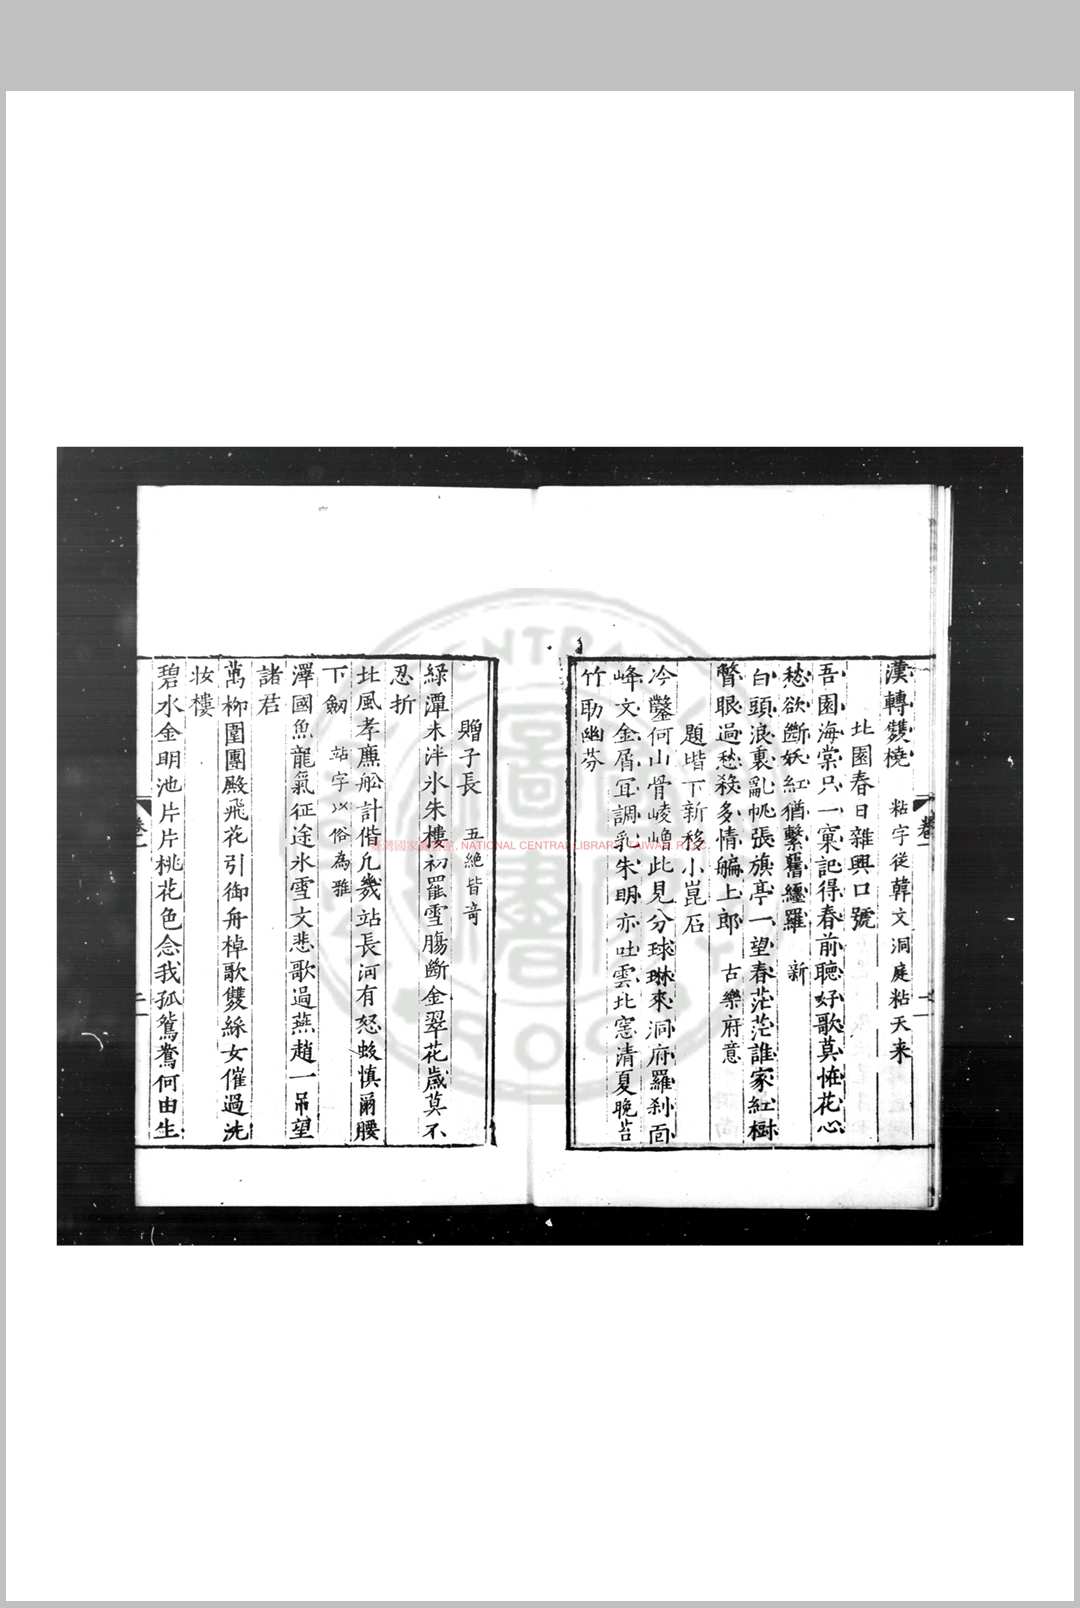 漢轉雙橈 粘字從韓文洞庭粘天来
北園春日雜興口號
吾園海棠只一窠記得春前聽好歌莫恠花心
愁欲斷妖紅猶繫舊纏羅 新
白頭浪裏亂帆張旗亭一望春茫茫誰家紅樹
瞥眼過愁殺多情艑上郎 古樂府意
題堦下新移小崑石
冷鑿何山骨崚嶒此見分球琳來洞府羅刹面
峰文金屑冝調乳朱明亦吐雲北窓清夏晚苔
竹助幽芬
卷一
一
贈子長 五絶皆奇
綠潭未泮氷朱樓初罷雪腸斷金翠花歲莫不
忍折
北風孝廉舩計偕凢幾站長河有怒蛟慎爾腰
下劒 站字以俗為雅
澤國魚龍氣征途氷雪文悲歌過燕趙一吊望
諸君
萬柳圍團殿飛花引御舟棹歌雙綵女催過洗
妝樓
碧水金明池片片桃花色念我孤鴛鴦何由生
卷一
二
臺灣國家圖書館, NATIONAL CENTRAL LIBRARY, TAIWAN, R.O.C.